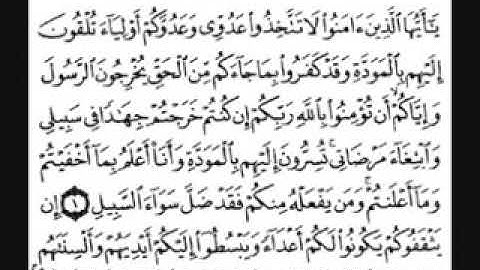 يَٰٓأَيُّهَا ٱلَّذِينَ ءَامَنُوا۟ لَا تَتَّخِذُوا۟ عَدُوِّى وَعَدُوَّكُمْ أَوْلِيَآءَ تُلْقُونَ
إِلَيْهِم بِٱلْمَوَدَّةِ وَقَدْ كَفَرُوا۟ بِمَا جَآءَكُم مِّنَ ٱلْحَقِّ يُخْرِجُونَ ٱلرَّسُولَ
وَإِيَّاكُمْ ۙ أَن تُؤْمِنُوا۟ بِٱللَّهِ رَبِّكُمْ إِن كُنتُمْ خَرَجْتُمْ جِهَٰدًا فِى سَبِيلِى
وَٱبْتِغَآءَ مَرْضَاتِى ۚ تُسِرُّونَ إِلَيْهِم بِٱلْمَوَدَّةِ وَأَنَا۠ أَعْلَمُ بِمَآ أَخْفَيْتُمْ
وَمَآ أَعْلَنتُمْ ۚ وَمَن يَفْعَلْهُ مِنكُمْ فَقَدْ ضَلَّ سَوَآءَ ٱلسَّبِيلِ ١ إِن
يَثْقَفُوكُمْ يَكُونُوا۟ لَكُمْ أَعْدَآءً وَيَبْسُطُوٓا۟ إِلَيْكُمْ أَيْدِيَهُمْ وَأَلْسِنَتَهُم